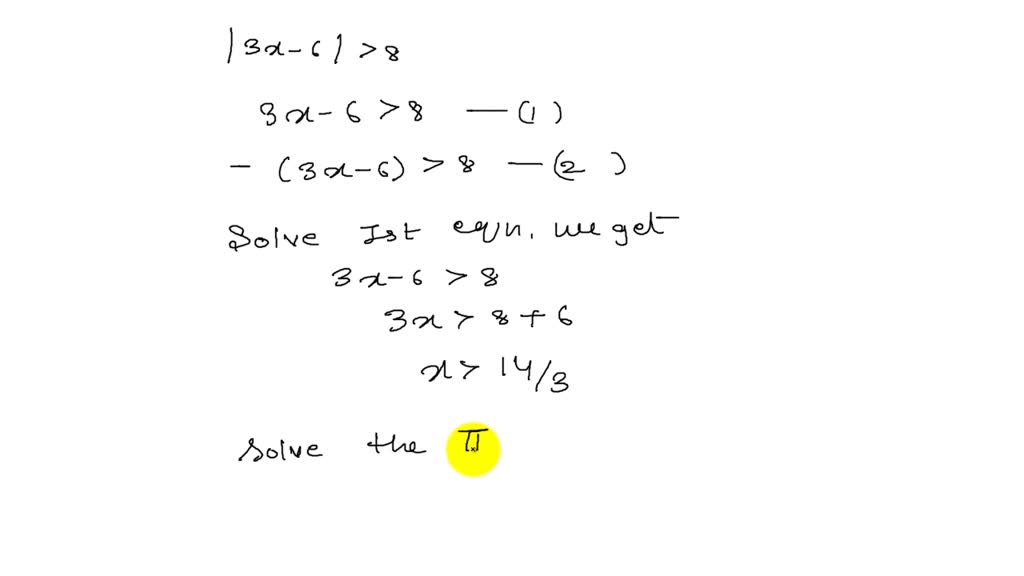 |3x-6| > 8
3x-6 > 8 — (1)
- (3x-6) > 8 — (2)
Solve Ist eqn. we get
3x-6 > 8
3x > 8+6
x > 14/3
solve the II